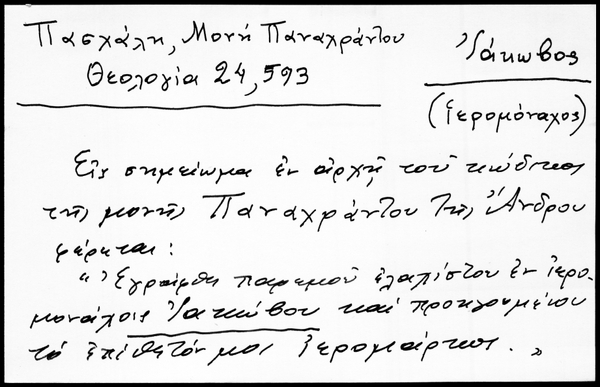 Πασχάλη, Μονή Παναχράντου
Θεολογία 24, 593
Ἰάκωβος
(ἱερομόναχος)
Εἰς σημείωμα ἐν ἀρχῇ τοῦ κώδικος
τῆς μονῆς Παναχράντου τῆς Ἄνδρου
φέρεται:
"Ἐγράφθη παρ' ἐμοῦ ἐλαχίστου ἐν ἱερο-
μονάχοις Ἰακώβου καί προηγουμένου
τό ἐπίθετόν μοι